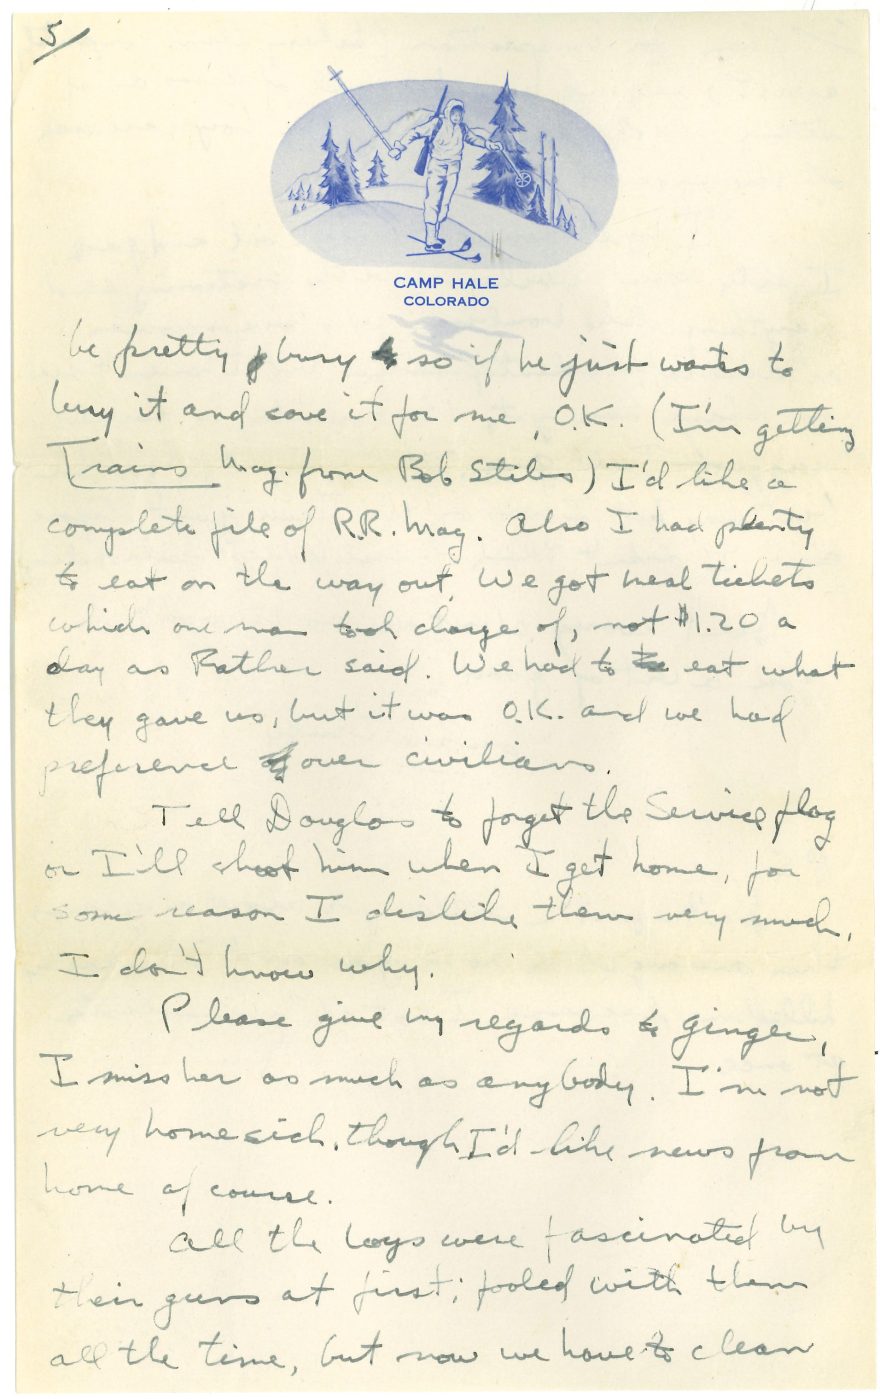 5/
CAMP HALE
COLORADO
be pretty busy so if he just wants to
buy it and save it for me, O.K. (I'm getting
Trains Mag. from Bob Stiles) I'd like a
complete file of R.R. Mag. Also I had plenty
to eat on the way out. We got meal tickets
which one man took charge of, not $1.20 a
day as Rather said. We had to eat what
they gave us, but it was O.K. and we had
preference over civilians.
Tell Douglas to forget the Service flag
or I'll shoot him when I get home, for
some reason I dislike them very much,
I don't know why.
Please give my regards to Ginger,
I miss her as much as anybody. I'm not
very homesick, though I'd like news from
home of course.
All the boys were fascinated by
their guns at first; fooled with them
all the time, but now we have to clean